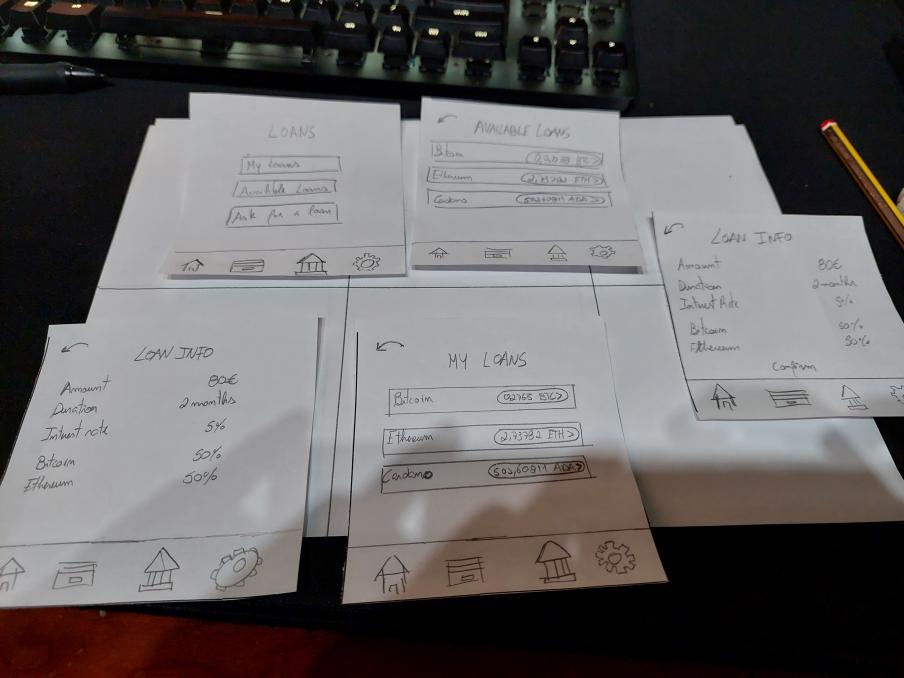 LOANS
My loans
Available Loans
Ask for a loan
AVAILABLE LOANS
Bitcoin
Ethereum
Cardano
LOAN INFO
Amount 80€
Duration 2 months
Intrest Rate 5%
Bitcoin 50%
Ethereum 50%
Confirm
LOAN INFO
Amount 80€
Duration 2 months
Intrest rate 5%
Bitcoin 50%
Ethereum 50%
MY LOANS
Bitcoin 0,2765 BTC>
Ethereum 2,73782 ETH>
Cardano 503,60811 ADA>